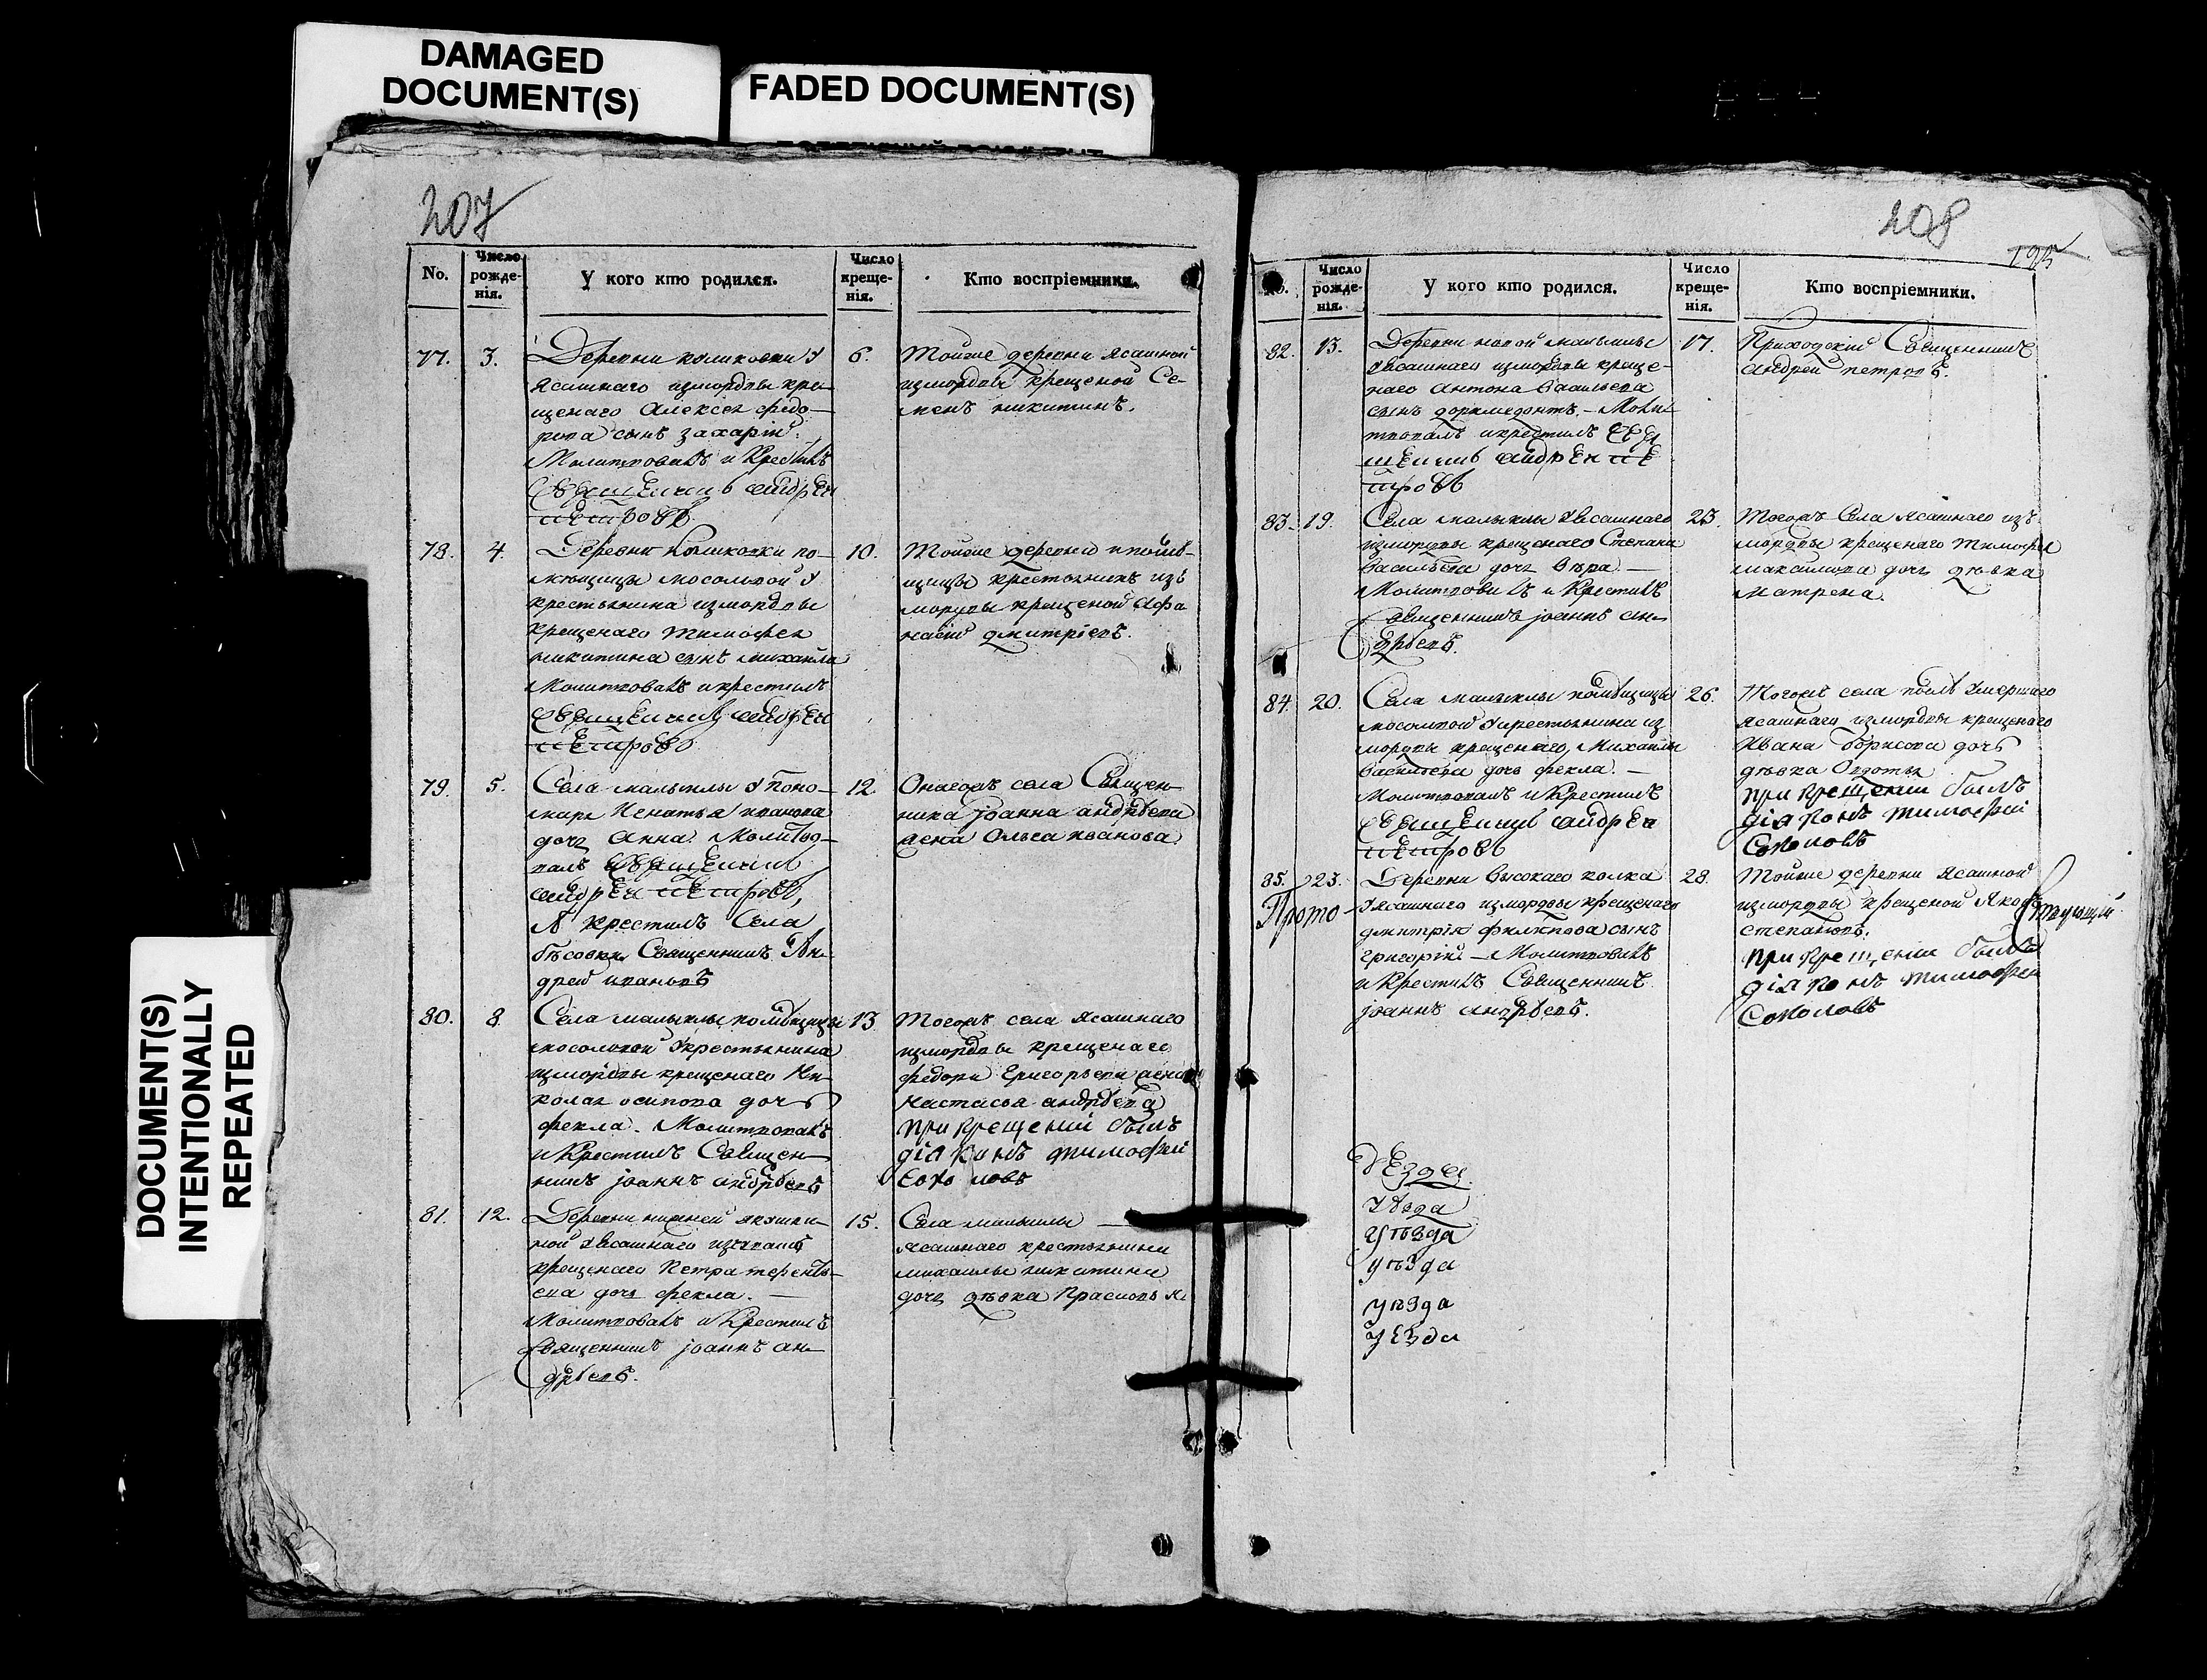 DAMAGED
DOCUMENT(S)
FADED DOCUMENT(S)
DOCUMENT(S)
INTENTIONALLY
REPEATED
207
No.
Число
рожде-
нія.
У кого кто родился.
Число
креще-
нія.
Кто воспріемники.
77.
3.
Деревни коликовки у
ясашнаго измордвы кре-
щенаго Алексея федо-
рова сынъ захарій.
Молитвовалъ и Крестилъ
Священникъ андрей
петровъ
6.
Тойже деревни ясашной
измордвы крещеной Се-
менъ никитинъ.
78.
4.
Деревни коликовки по-
мещицы мосоловой у
крестьянина измордвы
крещенаго тимофея
никитина сынъ михайла
Молитвовалъ и крестилъ
Священникъ андрей
петровъ
10.
Тойже деревни помѣ-
щицы крестьянинъ изъ
мордвы крещеной Афа
насій дмитріевъ.
79.
5.
Села малыклы у поно-
маря Игнатья иванова
дочь Анна. Молитво-
валъ Священникъ
андрей петровъ,
А крестилъ Села
бѣсовки Священникъ Ан-
дрей ивановъ
12.
Оногожъ села Священ-
ника Іоанна андрѣева
жена Ольга иванова
80.
8.
Села малыклы помѣщицы
мосоловой у крестьянина
измордвы крещенаго Ни-
колая осипова дочь
фекла. Молитвовалъ
и Крестилъ Священ-
никъ іоаннъ андрѣевъ
13
Тогожъ села ясашнаго
измордвы крещенаго
федора Григорьева жена
Настасья андрѣева
при крещеніи былъ
діяконъ тимофей
Соколовъ
81.
12.
Деревни нижней якушки-
ной у ясашнаго изчувашъ
крещенаго Петра теренть-
ева дочь фекла.
Молитвовалъ и Крестилъ
Священникъ іоаннъ ан-
дрѣевъ.
15.
Села малыклы
ясашнаго крестьянина
михайлы никитина
дочь дѣвка Прасковья
208
195
No.
Число
рожде-
нія.
У кого кто родился.
Число
креще-
нія.
Кто воспріемники.
82.
13.
Деревни новой малыклы
у ясашнаго измордвы креще-
наго Антона Васильева
сынъ доримедонтъ. - Моли
твовалъ и крестилъ Свя
щенникъ андрей пе
тровъ
17.
Приходскій Священникъ
Андрей петровъ.
83.
19.
Села малыклы у ясашнаго
измордвы крещенаго Степана
Васильева дочь Вѣра.
Молитвовалъ и Крестилъ
Священникъ іоаннъ ан-
дрѣевъ.
23.
Тогожъ Села ясашнаго изъ
мордвы крещенаго тимофея
максимова дочь дѣвка
матрена.
84.
20.
Села малыклы помѣщицы
мосоловой у крестьянина из
мордвы крещенаго, Михайлы
Васильева дочь фекла.
Молитвовалъ и Крестилъ
Священникъ андрей
петровъ
26.
Тогожъ села послѣ умершаго
ясашнаго измордвы крещенаго
Ивана борисова дочь
дѣвка Овдотья
при крещеніи былъ
діяконъ тимофей
Соколовъ
85.
23.
Деревни высокаго колка
у ясашнаго измордвы крещенаго
дмитрія филипова сынъ
григорій - Молитвовалъ
и Крестилъ Священникъ
іоаннъ андрѣевъ.
28.
Тойже деревни ясашной
измордвы крещеной Яковъ
степановъ.
при крещеніи былъ
діяконъ тимофей
Соколовъ
Прото-
уѣзда
уѣзда
уѣзда
уѣзда
уезда